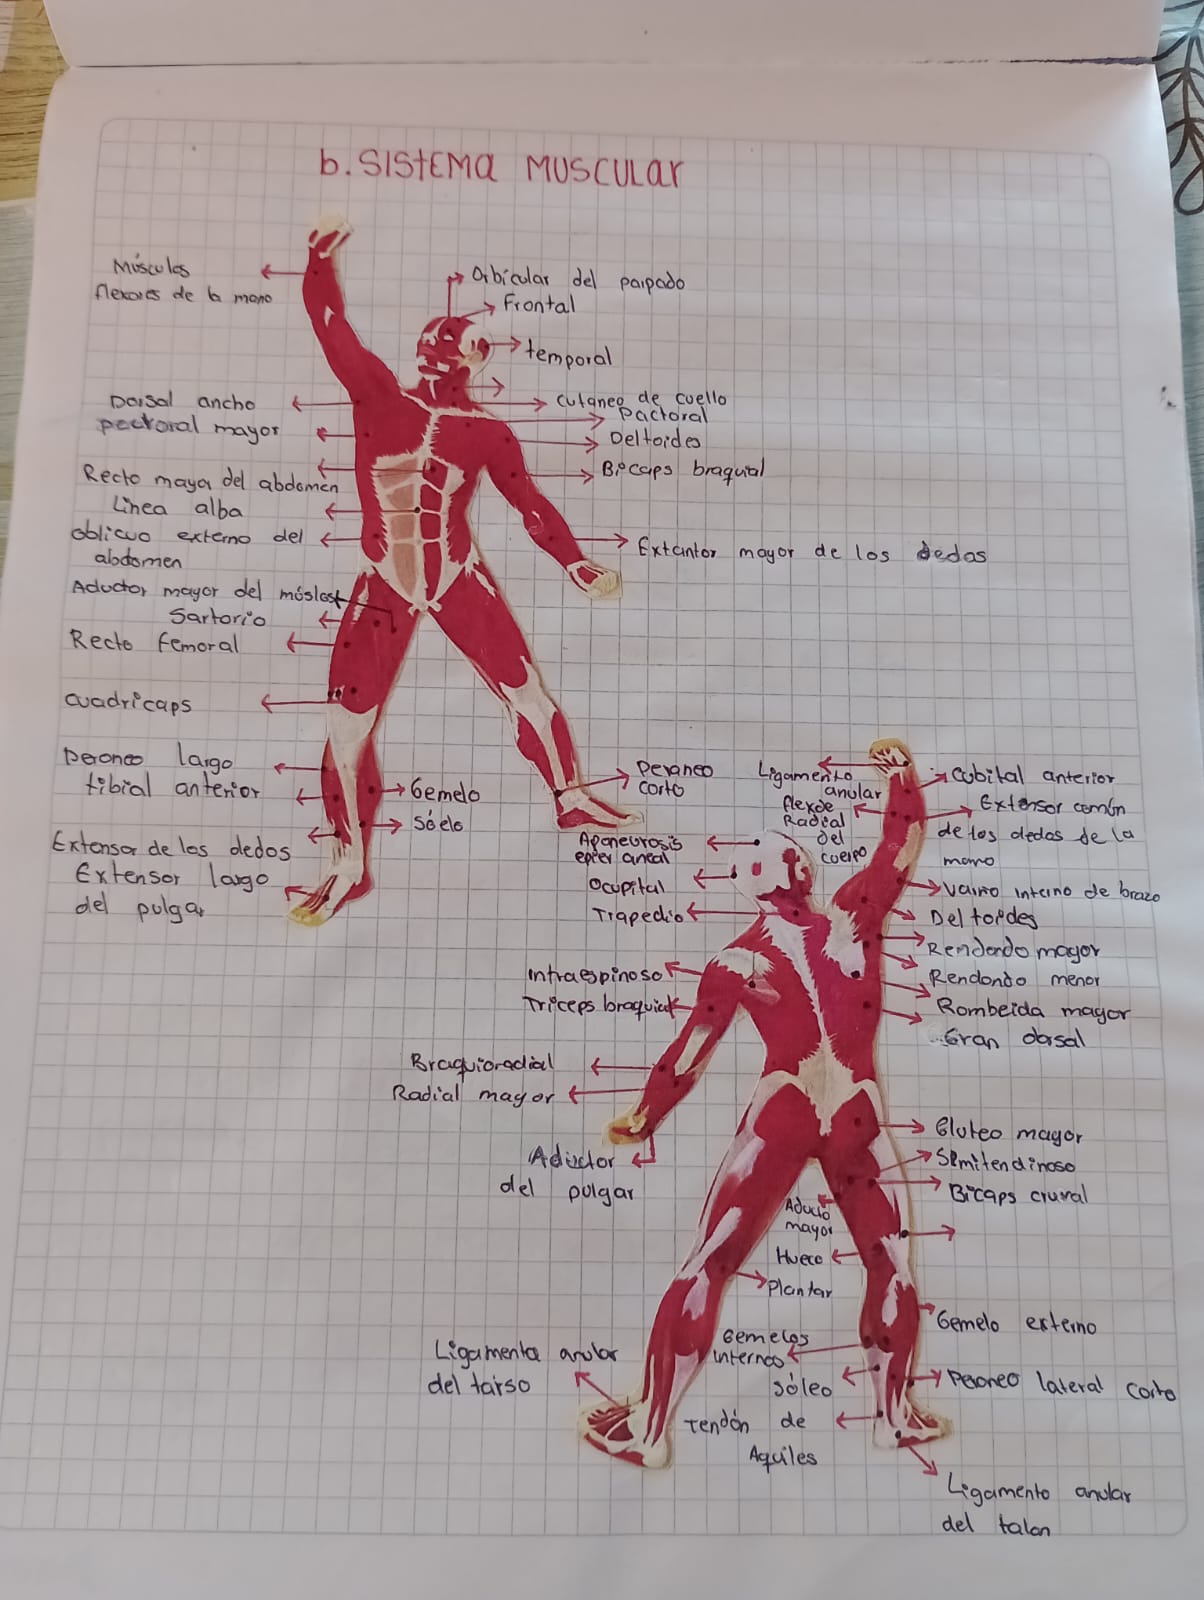 b. SISTEMA MUSCULAR
Músculos
flexores de la mano
Orbicular del parpado
Frontal
temporal
Dorsal ancho
pectoral mayor
cutaneo de cuello
pactoral
Deltoides
Bicaps braquial
Recto mayar del abdomen
Linea alba
oblicuo externo del
abdomen
Extantor mayor de los dedos
Aductor mayor del
Sartorio
Recto femoral
cuadricaps
Peroneo largo
tibial anterior
Gemelo
Sóelo
Extensor de los dedos
Extensor largo
del pulgar
Peraneo
corto
Ligamento
anular
flexde
Radial
del
cuerpo
Cubital anterior
Extensor común
de los dedos de la
mano
Aponeurosis
Ocupital
Trapedio
interno de brazo
Deltoides
Rendondo mayor
Rendondo menor
Rombeida mayor
Gran dorsal
intraespinoso
Triceps braquial
Braquioradial
Radial mayor
Aductor
del pulgar
Gluteo mayor
Semitendinoso
Bicaps cruval
Aducto
mayor
Hueco
Plantar
Gemelo externo
Gemelos
internos
Sóleo
Peroneo lateral corto
Ligamento anular
del tarso
Tendón de
Aquiles
Ligamento anular
del talon